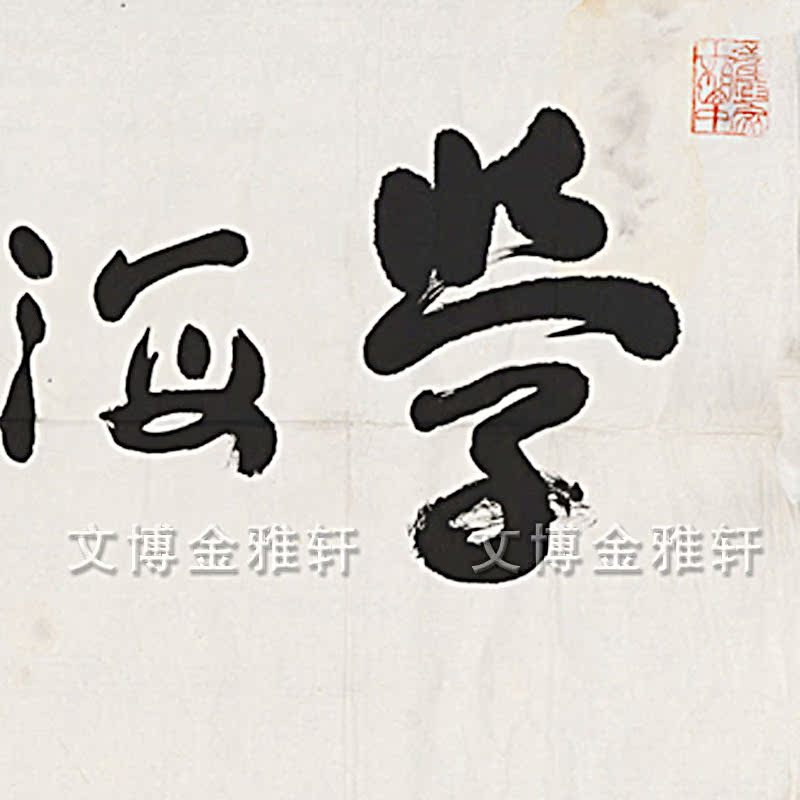 学海
文博金雅轩 文博金雅轩